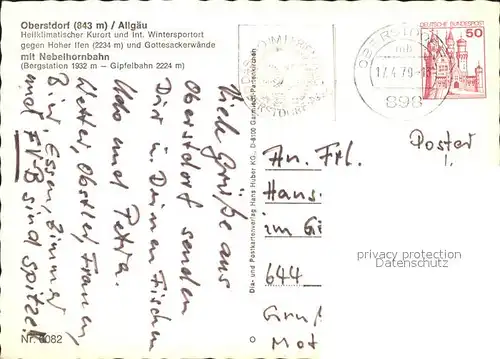 Oberstdorf (843 m) / Allgäu
Heilklimatischer Kurort und Int. Wintersportort
gegen Hoher Ifen (2234 m) und Gottesackerwände
mit Nebelhornbahn
(Bergstation 1932 m – Gipfelbahn 2224 m)
Viele Grüße aus
Oberstdorf senden
Dir u. Deinen Fischen
Udo und Petra.
Wetter, Obstler, Frauen,
Bier, Essen, Zimmer
und
sind Spitze!
Nr. 6082
Dia- und Postkartenverlag Hans Huber KG., D-8100 Garmisch-Partenkirchen
OBERSTDORF
mb
17.4.78-18
898
DEUTSCHE BUNDESPOST
50
Poster
An. Frl.
Hans-
im Gi
644
privacy protection
Datenschutz